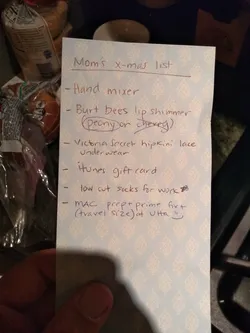 Mom's x-mas list
- Hand mixer
- Burt bees lip shimmer
(peony or cherry)
- Victoria secret hipkini lace
underwear
- itunes gift card
- low cut socks for work
- MAC prep + prime fix +
(travel size) at Ulta :)